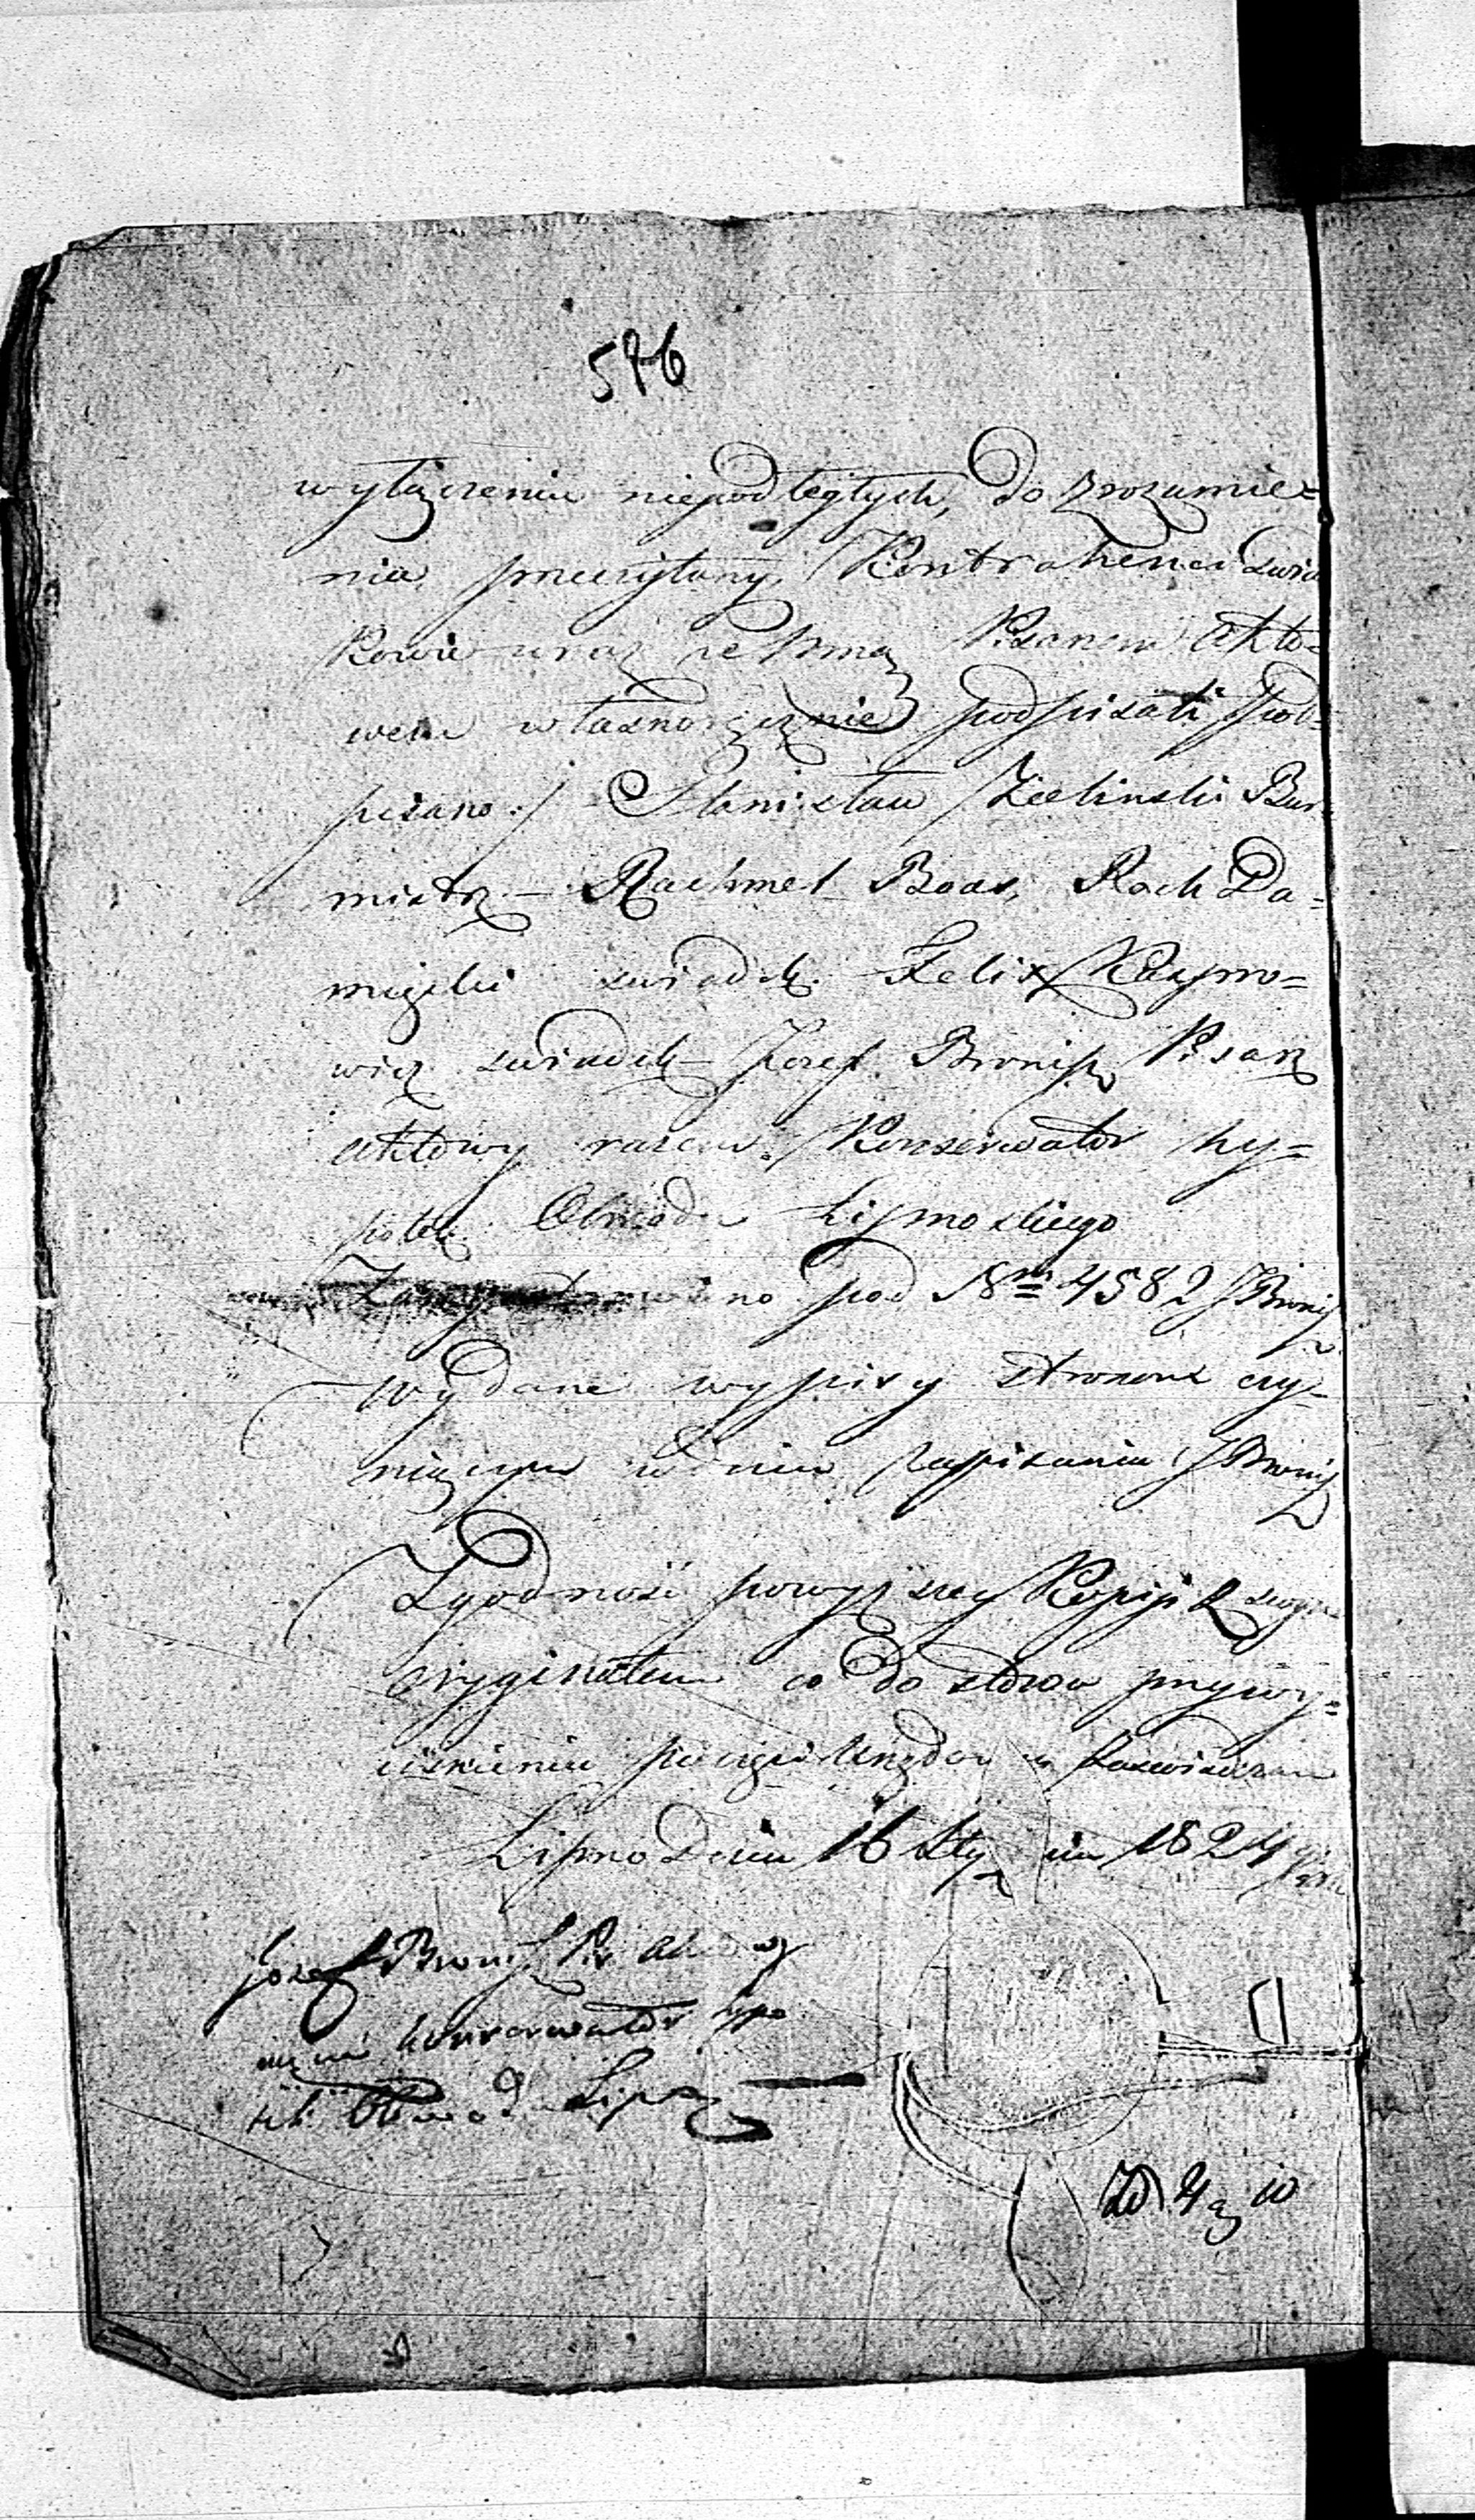 576
wyłączeniu niepodległych, do zrozumie=
nia przeczytany, Kontrahenci świa
Kowie wraz ze mną Pisarzem Akto=
wem własnoręcznie podpisali pod=
pisano:/ Stanisław Zieliński Bur=
mistrz – Rachmel Boas, Roch Da=
mięcki świadek. Felix Kazymo=
wicz świadek – Jozef Bronisz Pisarz
Aktowy razem Konserwator hy=
potek Obwodu Lipnoskiego
pod Nrm 4582 JBronisz
Wydane wypisy stronom czy=
niącym w dniu zapisania JBronisz
Zgodność powyższey Kopiji z swym
oryginałem co do słowa przy wy=
ciśnieniu pieczęci Urzędowey zaświadczam
Lipno dnia 16 Stycznia 1824 Roku
Jozef Bronisz Pis. Aktowy
konserwator hypo
tek Obwodu Lipn